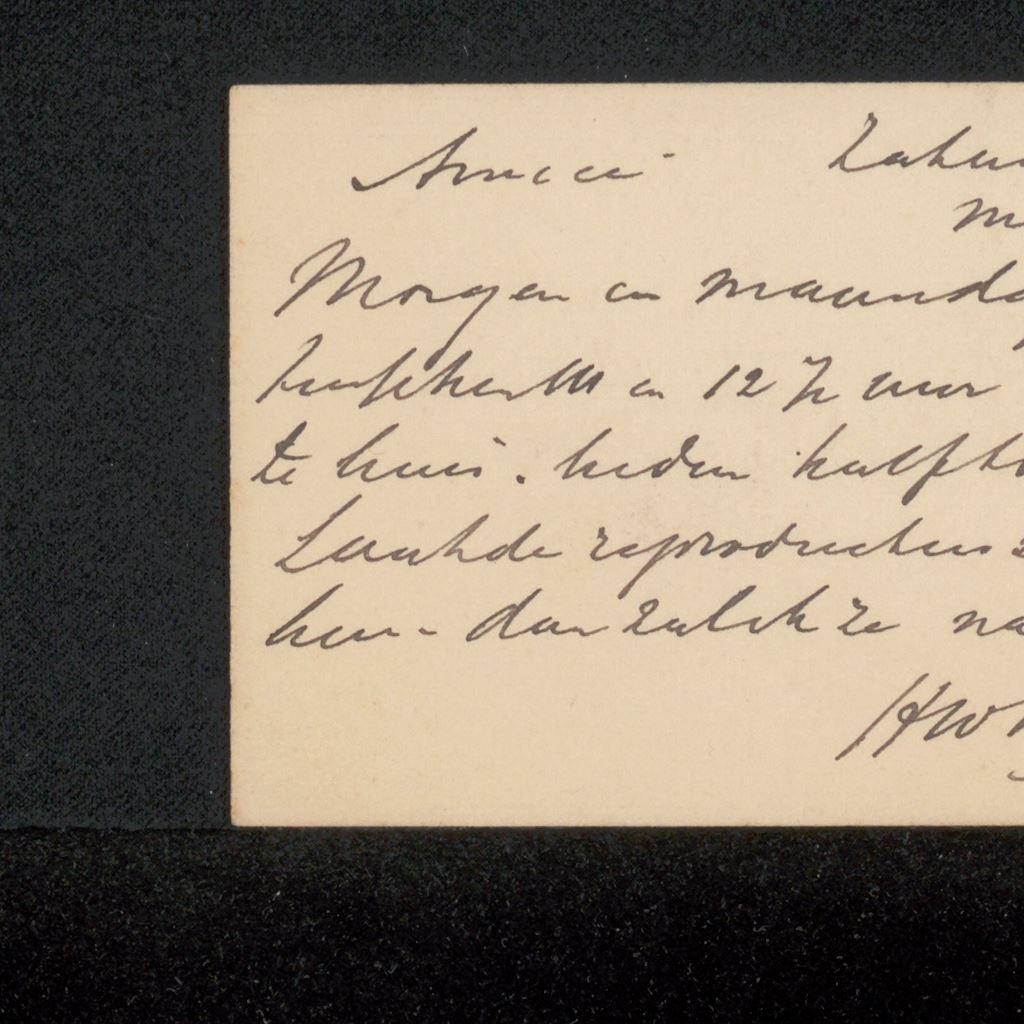 Amice
Morgen en maanda
tusschen 11 en 12 ½ uur
te huis. heden half
Laat de reproducties
hen - dan zal ik ze na
HW